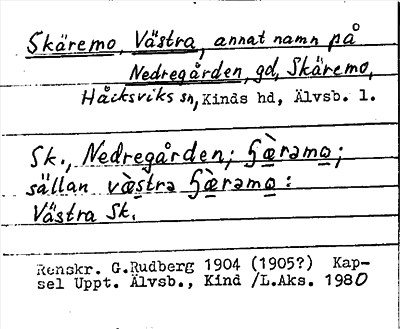 Skäremo, Västra, annat namn på
Nedregården, gd, Skäremo,
Håcksviks sn, Kinds hd, Älvsb. l.
Sk., Nedregården; ʃæ̀rəmo;
sällan væ̀stra ʃæ̀rəmo:
Västra Sk.
Renskr. G.Rudberg 1904 (1905?) Kap-
sel Uppt. Älvsb., Kind /L.Aks. 1980